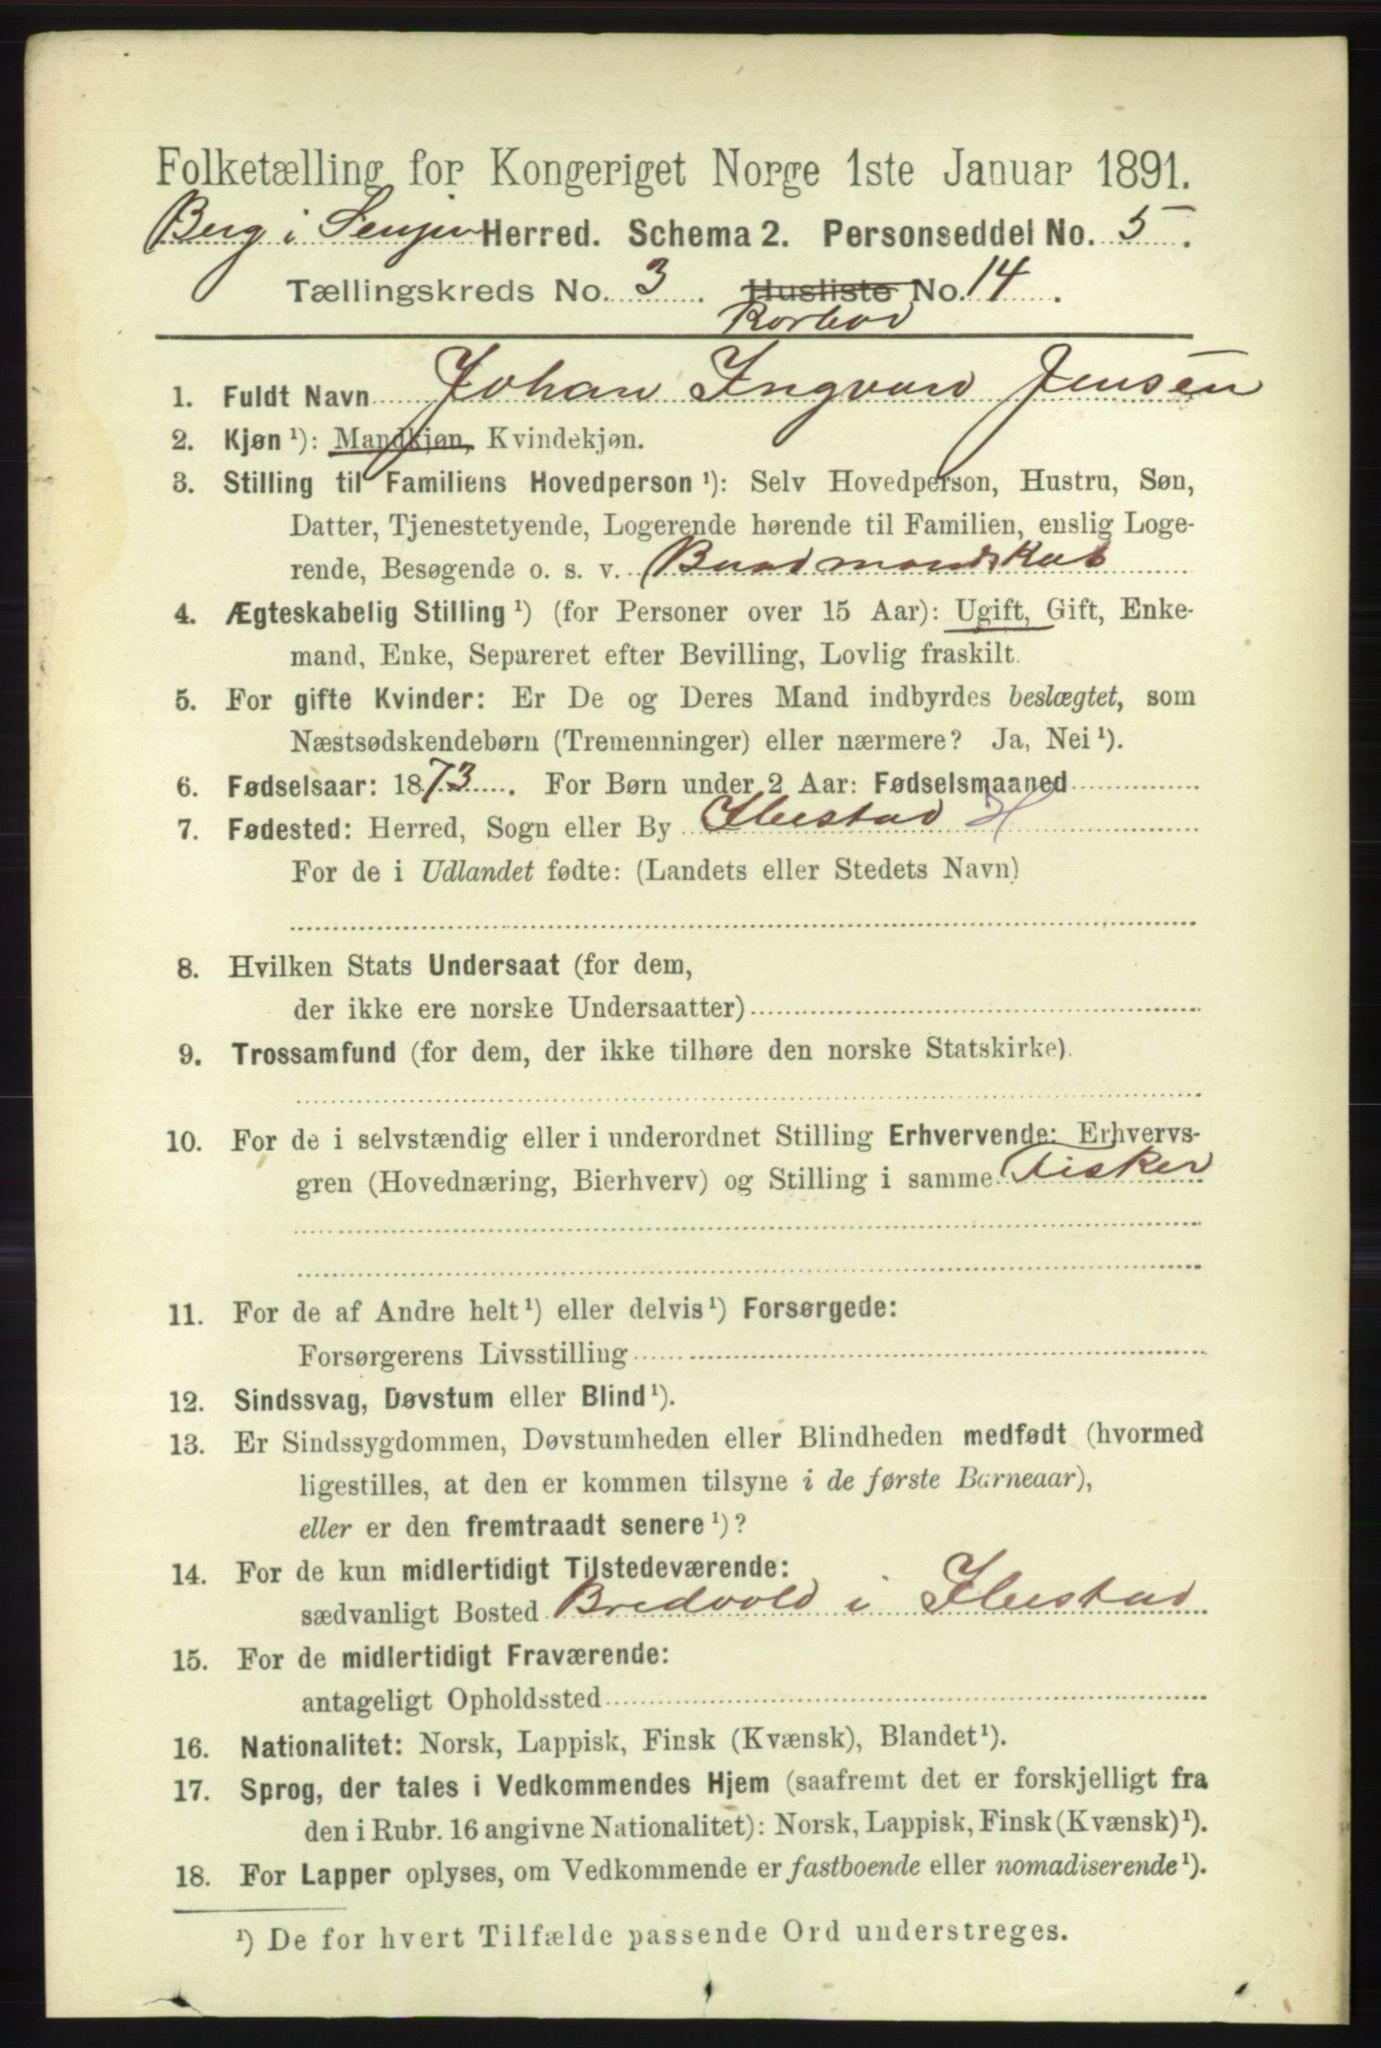 Folketælling for Kongeriget Norge 1ste Januar 1891.
Berg i Senjen Herred. Schema 2. Personseddel No. 5.
Tællingskreds No. 3. Husliste No. 14.
Rorbod
1. Fuldt Navn Johan Ingvard Jensen
2. Kjøn ¹): Mandkjøn, Kvindekjøn.
3. Stilling til Familiens Hovedperson ¹): Selv Hovedperson, Hustru, Søn,
Datter, Tjenestetyende, Logerende hørende til Familien, enslig Loge-
rende, Besøgende o. s. v. Baadmandskab
4. Ægteskabelig Stilling ¹) (for Personer over 15 Aar): Ugift, Gift, Enke-
mand, Enke, Separeret efter Bevilling, Lovlig fraskilt.
5. For gifte Kvinder: Er De og Deres Mand indbyrdes beslægtet, som
Næstsødskendebørn (Tremenninger) eller nærmere? Ja, Nei ¹).
6. Fødselsaar: 1873. For Børn under 2 Aar: Fødselsmaaned
7. Fødested: Herred, Sogn eller By Ibestad H
For de i Udlandet fødte: (Landets eller Stedets Navn)
8. Hvilken Stats Undersaat (for dem,
der ikke ere norske Undersaatter)
9. Trossamfund (for dem, der ikke tilhøre den norske Statskirke).
10. For de i selvstændig eller i underordnet Stilling Erhvervende: Erhvervs-
gren (Hovednæring, Bierhverv) og Stilling i samme Fisker
11. For de af Andre helt ¹) eller delvis ¹) Forsørgede:
Forsørgerens Livsstilling
12. Sindssvag, Døvstum eller Blind ¹).
13. Er Sindssygdommen, Døvstumheden eller Blindheden medfødt (hvormed
ligestilles, at den er kommen tilsyne i de første Barneaar),
eller er den fremtraadt senere ¹)?
14. For de kun midlertidigt Tilstedeværende:
sædvanligt Bosted Bredvold i Ibestad
15. For de midlertidigt Fraværende:
antageligt Opholdssted
16. Nationalitet: Norsk, Lappisk, Finsk (Kvænsk), Blandet ¹).
17. Sprog, der tales i Vedkommendes Hjem (saafremt det er forskjelligt fra
den i Rubr. 16 angivne Nationalitet): Norsk, Lappisk, Finsk (Kvænsk) ¹).
18. For Lapper oplyses, om Vedkommende er fastboende eller nomadiserende ¹).
¹) De for hvert Tilfælde passende Ord understreges.